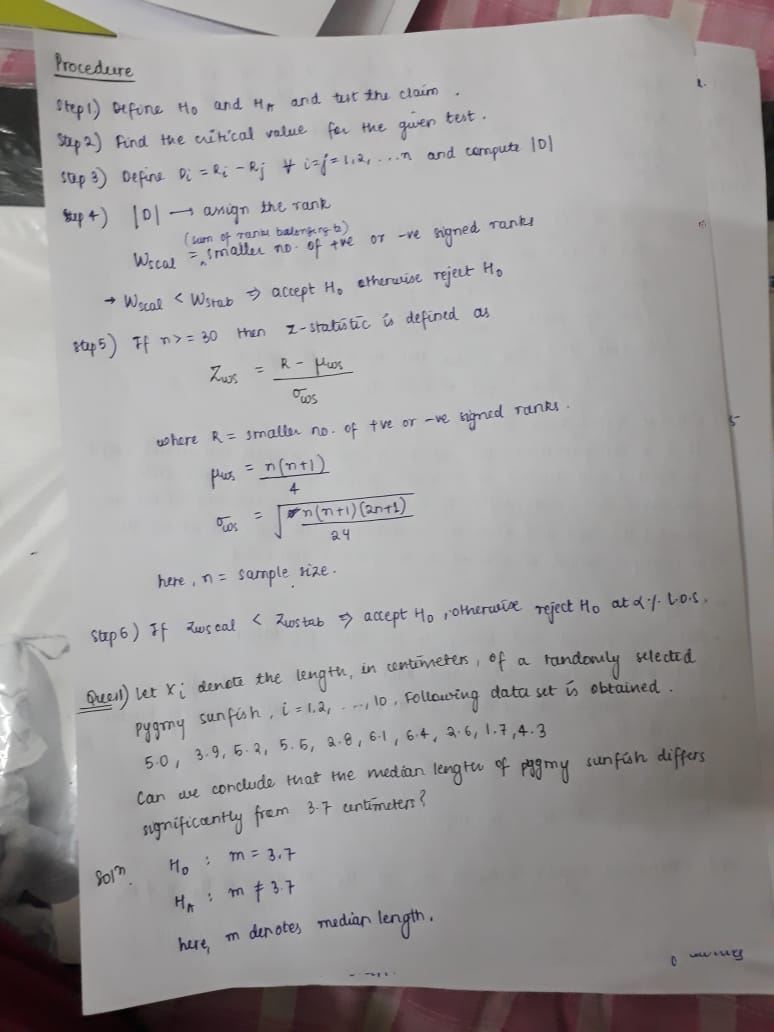 Procedure
Step 1) Define H₀ and Hᴀ and test the claim.
Step 2) Find the critical value for the given test.
Step 3) Define Dᵢ = Rᵢ - Rⱼ ∀ i=j=1,2,...n and compute |D|
Step 4) |D| → assign the rank
(sum of ranks belonging to)
Wscal = smaller no. of +ve or -ve signed ranks
→ Wscal < Wstab ⇒ accept H₀ otherwise reject H₀
Step 5) If n >= 30 then z-statistic is defined as
Zws = R - μws / σws
where R = smaller no. of +ve or -ve signed ranks.
μws = n(n+1) / 4
σws = √n(n+1)(2n+1) / 24
here, n = sample size.
Step 6) If Zws cal < Zws tab ⇒ accept H₀, otherwise reject H₀ at α % L.O.S.
Ques 1) Let Xᵢ denote the length, in centimeters, of a randomly selected
pygmy sunfish, i = 1,2, ..., 10. Following data set is obtained.
5.0, 3.9, 5.2, 5.5, 2.8, 6.1, 6.4, 2.6, 1.7, 4.3
Can we conclude that the median length of pygmy sunfish differs
significantly from 3.7 centimeters?
Solⁿ. H₀ : m = 3.7
Hᴀ : m ≠ 3.7
here, m denotes median length.